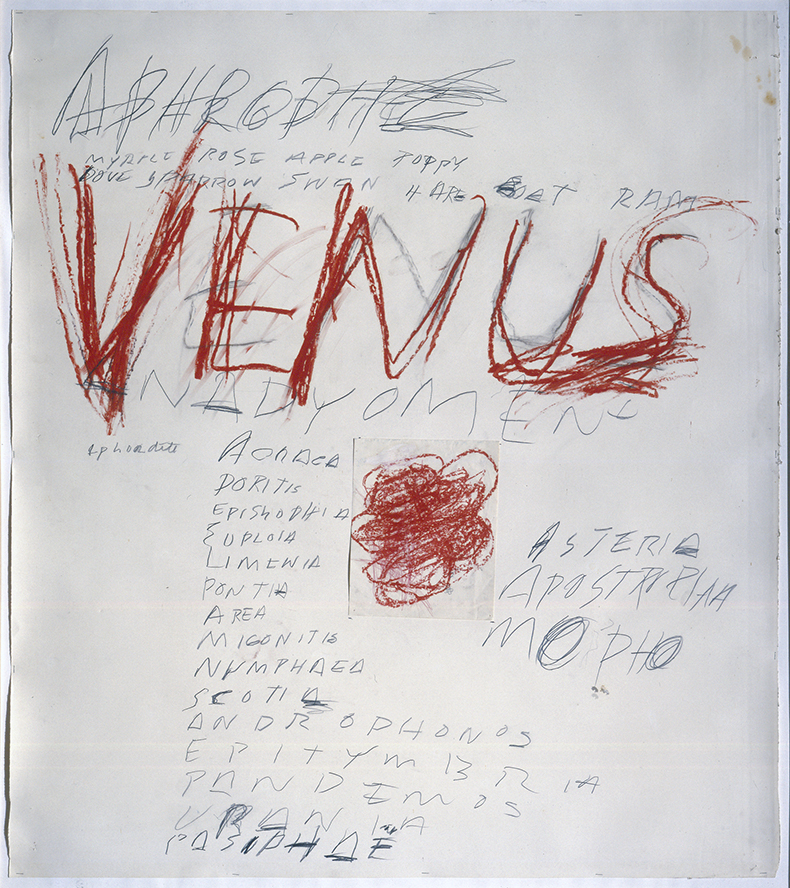 APHRODITE
MYRTLE ROSE APPLE POPPY
DOVE SPARROW SWAN HARE GOAT RAM
VENUS
ANADYOMENE
Aphrodite
ACRAEA
DORITIS
EPISTROPHIA
EUPLOIA
LIMENIA
PONTIA
AREA
MIGONITIS
NUMPHAEA
SCOTIA
ANDROPHONOS
EPITYMBRIA
PANDEMOS
URANIA
PASIPHAE
ASTERIA
APOSTROPHIA
MOPHO